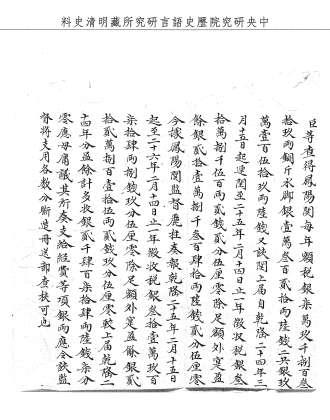 中央研究院歷史語言研究所藏明清史料
臣等查得鳳陽關每年額稅銀柒萬玖千捌百叁
拾玖兩銅斤水脚銀壹萬叁百貳拾兩陸錢二共銀玖
萬壹百伍拾玖兩陸錢又該關上屆自乾隆二十四年三
月十五日起連閏至二十五年二月十四日止一年徵收稅銀叁
拾萬捌千伍百兩貳錢貳分伍厘零除足額外定盈
餘銀貳拾壹萬捌千叁百肆拾兩陸錢貳分伍厘零
今據鳳陽關監督鹿柱奏報乾隆二十五年二月十五日
起至二十六年二月十四日止一年徵收稅銀叁拾壹萬玖百
柒拾肆兩捌錢玖分伍厘零除足額外定盈餘銀貳
拾貳萬捌百壹拾伍兩貳錢玖分伍厘零較上屆乾隆二
十四年分盈餘計多收銀貳千肆百柒拾肆兩陸錢柒分
零應毋庸議其所奏支給經費等項銀兩應令該監
督將支用各數分晰造冊送部查核可也